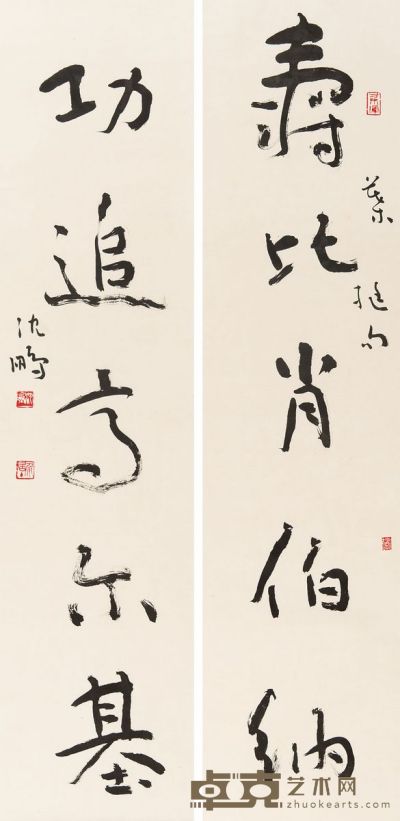 壽比肖伯纳
葉挺句
功追高尔基
沈鹏
卓克艺术网
zhuokearts.com